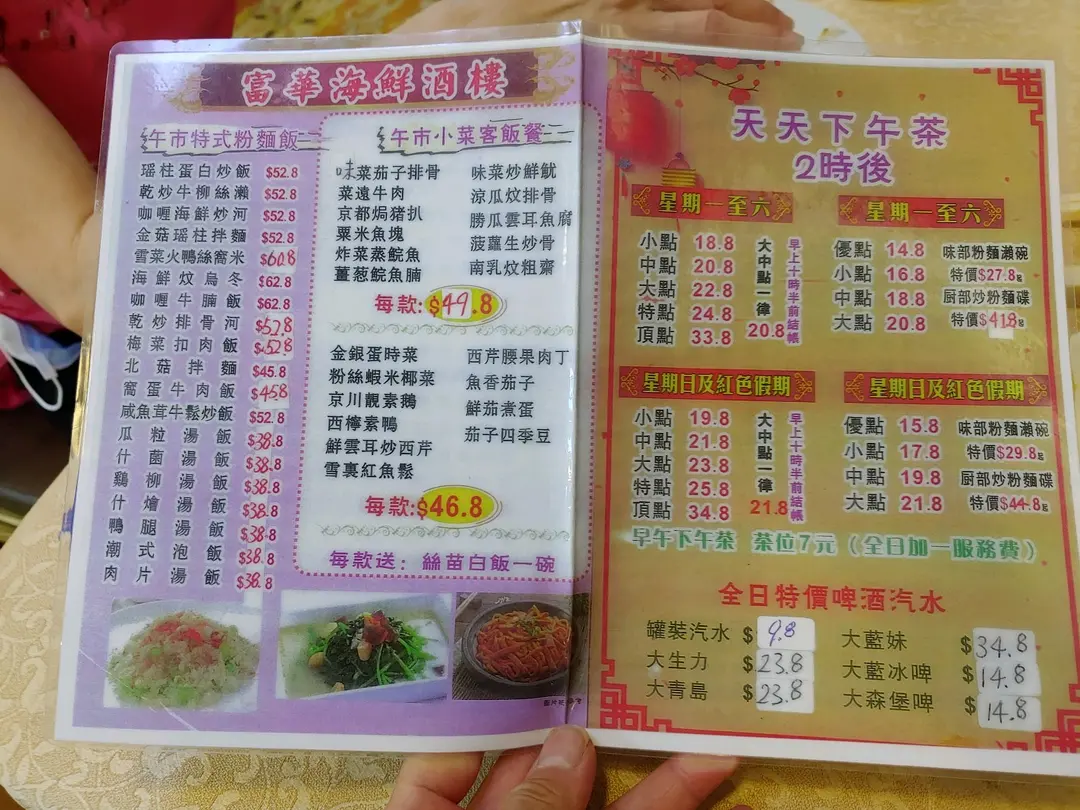 富華海鮮酒樓
午市特式粉麵飯
瑶柱蛋白炒飯 $52.8
乾炒牛柳絲瀨 $52.8
咖喱海鮮炒河 $52.8
金菇瑶柱拌麵 $52.8
雪菜火鴨絲窩米 $60.8
海鮮炆烏冬 $62.8
咖喱牛腩飯 $62.8
乾炒排骨河 $52.8
梅菜扣肉飯 $52.8
北菇拌麵 $45.8
窩蛋牛肉飯 $45.8
咸魚茸牛鬆炒飯 $52.8
瓜粒湯飯 $38.8
什菌湯飯 $38.8
鷄柳湯飯 $38.8
什燴湯飯 $38.8
鴨腿湯飯 $38.8
潮式泡飯 $38.8
肉片湯飯 $38.8
午市小菜客飯餐
味菜茄子排骨 味菜炒鮮魷
菜遠牛肉 涼瓜炆排骨
京都焗猪扒 勝瓜雲耳魚腐
粟米魚塊 菠蘿生炒骨
炸菜蒸鯇魚 南乳炆粗齋
薑葱鯇魚腩
每款:$49.8
金銀蛋時菜 西芹腰果肉丁
粉絲蝦米椰菜 魚香茄子
京川靚素鵝 鮮茄煮蛋
西檸素鴨 茄子四季豆
鮮雲耳炒西芹
雪裏紅魚鬆
每款:$46.8
每款送：絲苗白飯一碗
天天下午茶
2時後
星期一至六
小點 18.8
中點 20.8
大點 22.8
特點 24.8
頂點 33.8
大中點一律 20.8
早上十時半前結帳
星期一至六
優點 14.8
小點 16.8
中點 18.8
大點 20.8
味部粉麵瀨碗
特價$27.8起
厨部炒粉麵碟
特價$41.8起
星期日及紅色假期
小點 19.8
中點 21.8
大點 23.8
特點 25.8
頂點 34.8
大中點一律 21.8
早上十時半前結帳
星期日及紅色假期
優點 15.8
小點 17.8
中點 19.8
大點 21.8
味部粉麵瀨碗
特價$29.8起
厨部炒粉麵碟
特價$44.8起
早午下午茶 茶位7元（全日加一服務費）
全日特價啤酒汽水
罐裝汽水 $9.8 大藍妹 $34.8
大生力 $23.8 大藍冰啤 $14.8
大青島 $23.8 大森堡啤 $14.8